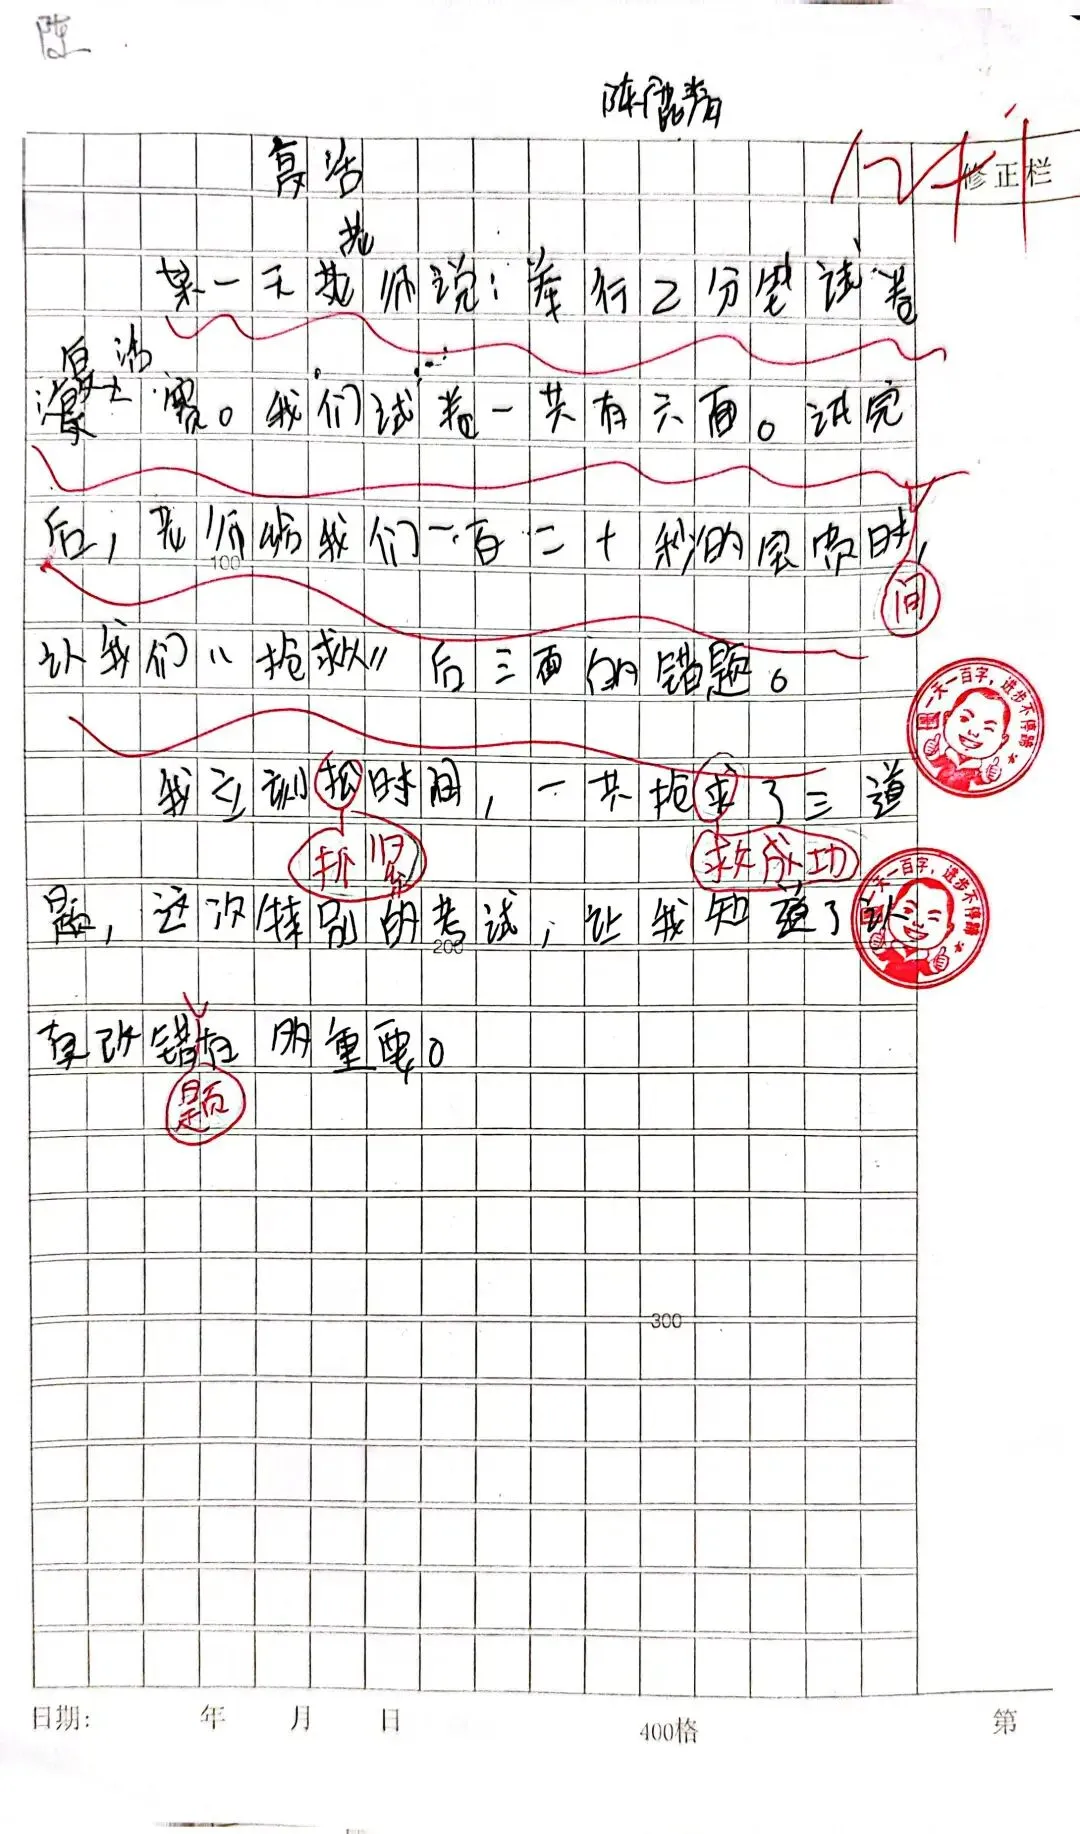 陈
陈
复活
12分
修正栏
老
某一天老师说:举行2分钟试卷
复活
赛。我们试卷一共有六面。试完
后,老师给我们一百二十秒的宝贵时,
100
间
让我们“抢救”后三面的错题。
一天一百字,进步不停蹄
我立刻抢时间,一共抢求了三道
抓紧
救成功
一天一百字,进步不停蹄
题,这次特别的考试,让我知道了认
200
真改错在 的重要。
题
300
日期: 年 月 日
400格
第